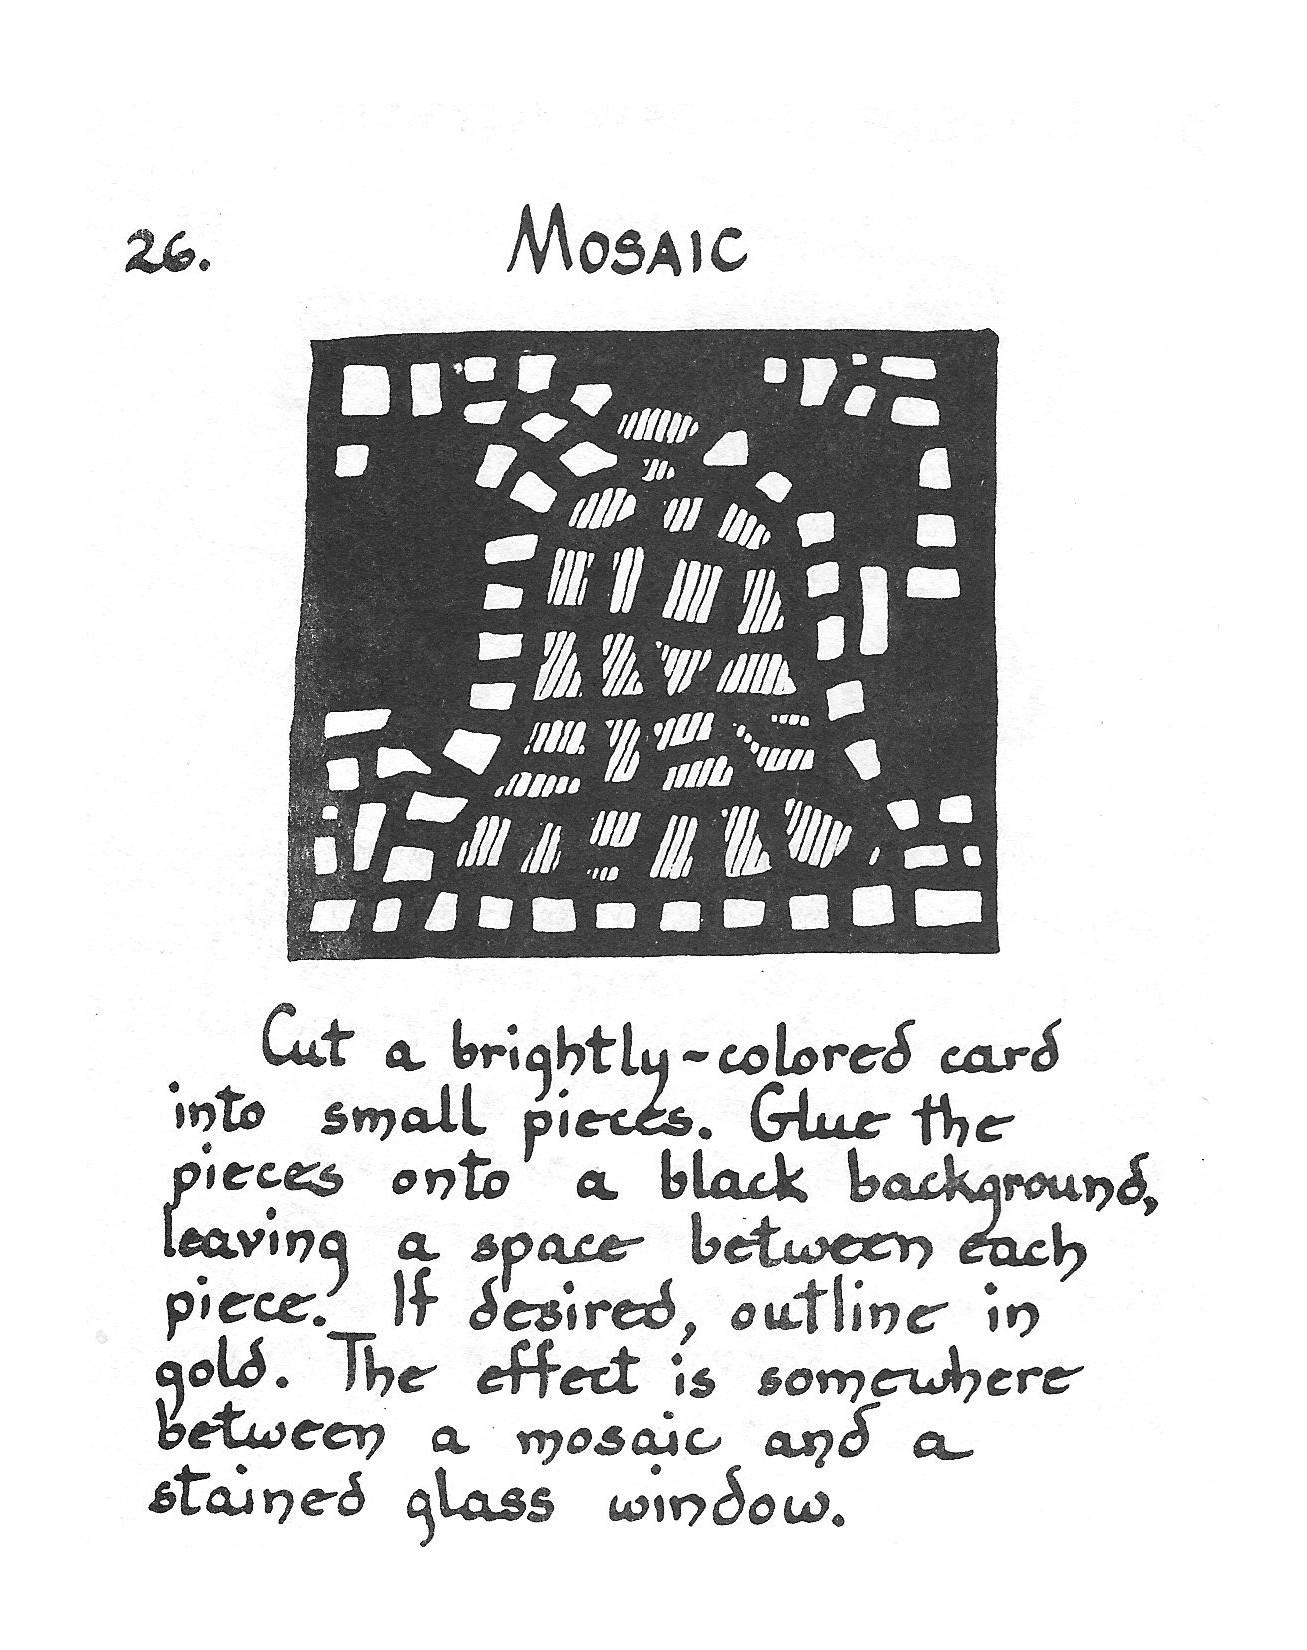 26. MOSAIC
Cut a brightly-colored card
into small pieces. Glue the
pieces onto a black background,
leaving a space between each
piece. If desired, outline in
gold. The effect is somewhere
between a mosaic and a
stained glass window.